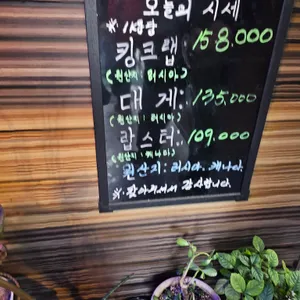 오늘의 시세
※ 1kg당
킹크랩: 158.000
(원산지: 러시아)
대게: 135.000
(원산지: 러시아)
랍스터: 109.000
(원산지: 캐나다)
원산지: 러시아. 캐나다.
※. 찾아주셔서 감사합니다.